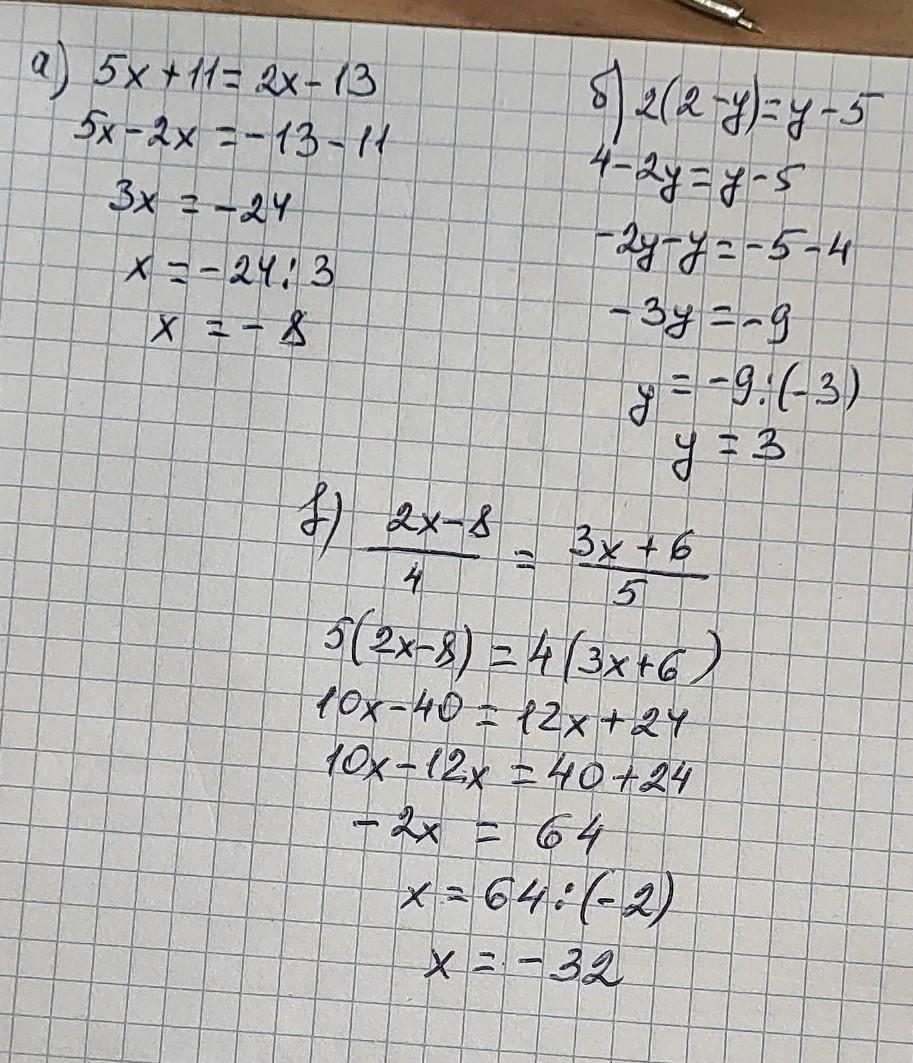 а) 5x + 11 = 2x - 13
5x - 2x = -13 - 11
3x = -24
x = -24 : 3
x = -8
б) 2(2 - y) = y - 5
4 - 2y = y - 5
-2y - y = -5 - 4
-3y = -9
y = -9 : (-3)
y = 3
в) (2x - 8)/4 = (3x + 6)/5
5(2x - 8) = 4(3x + 6)
10x - 40 = 12x + 24
10x - 12x = 40 + 24
-2x = 64
x = 64 : (-2)
x = -32